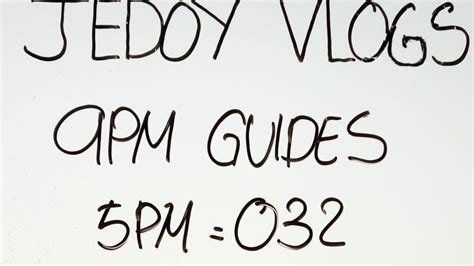 JEDOY VLOGS
9PM GUIDES
5PM = 032